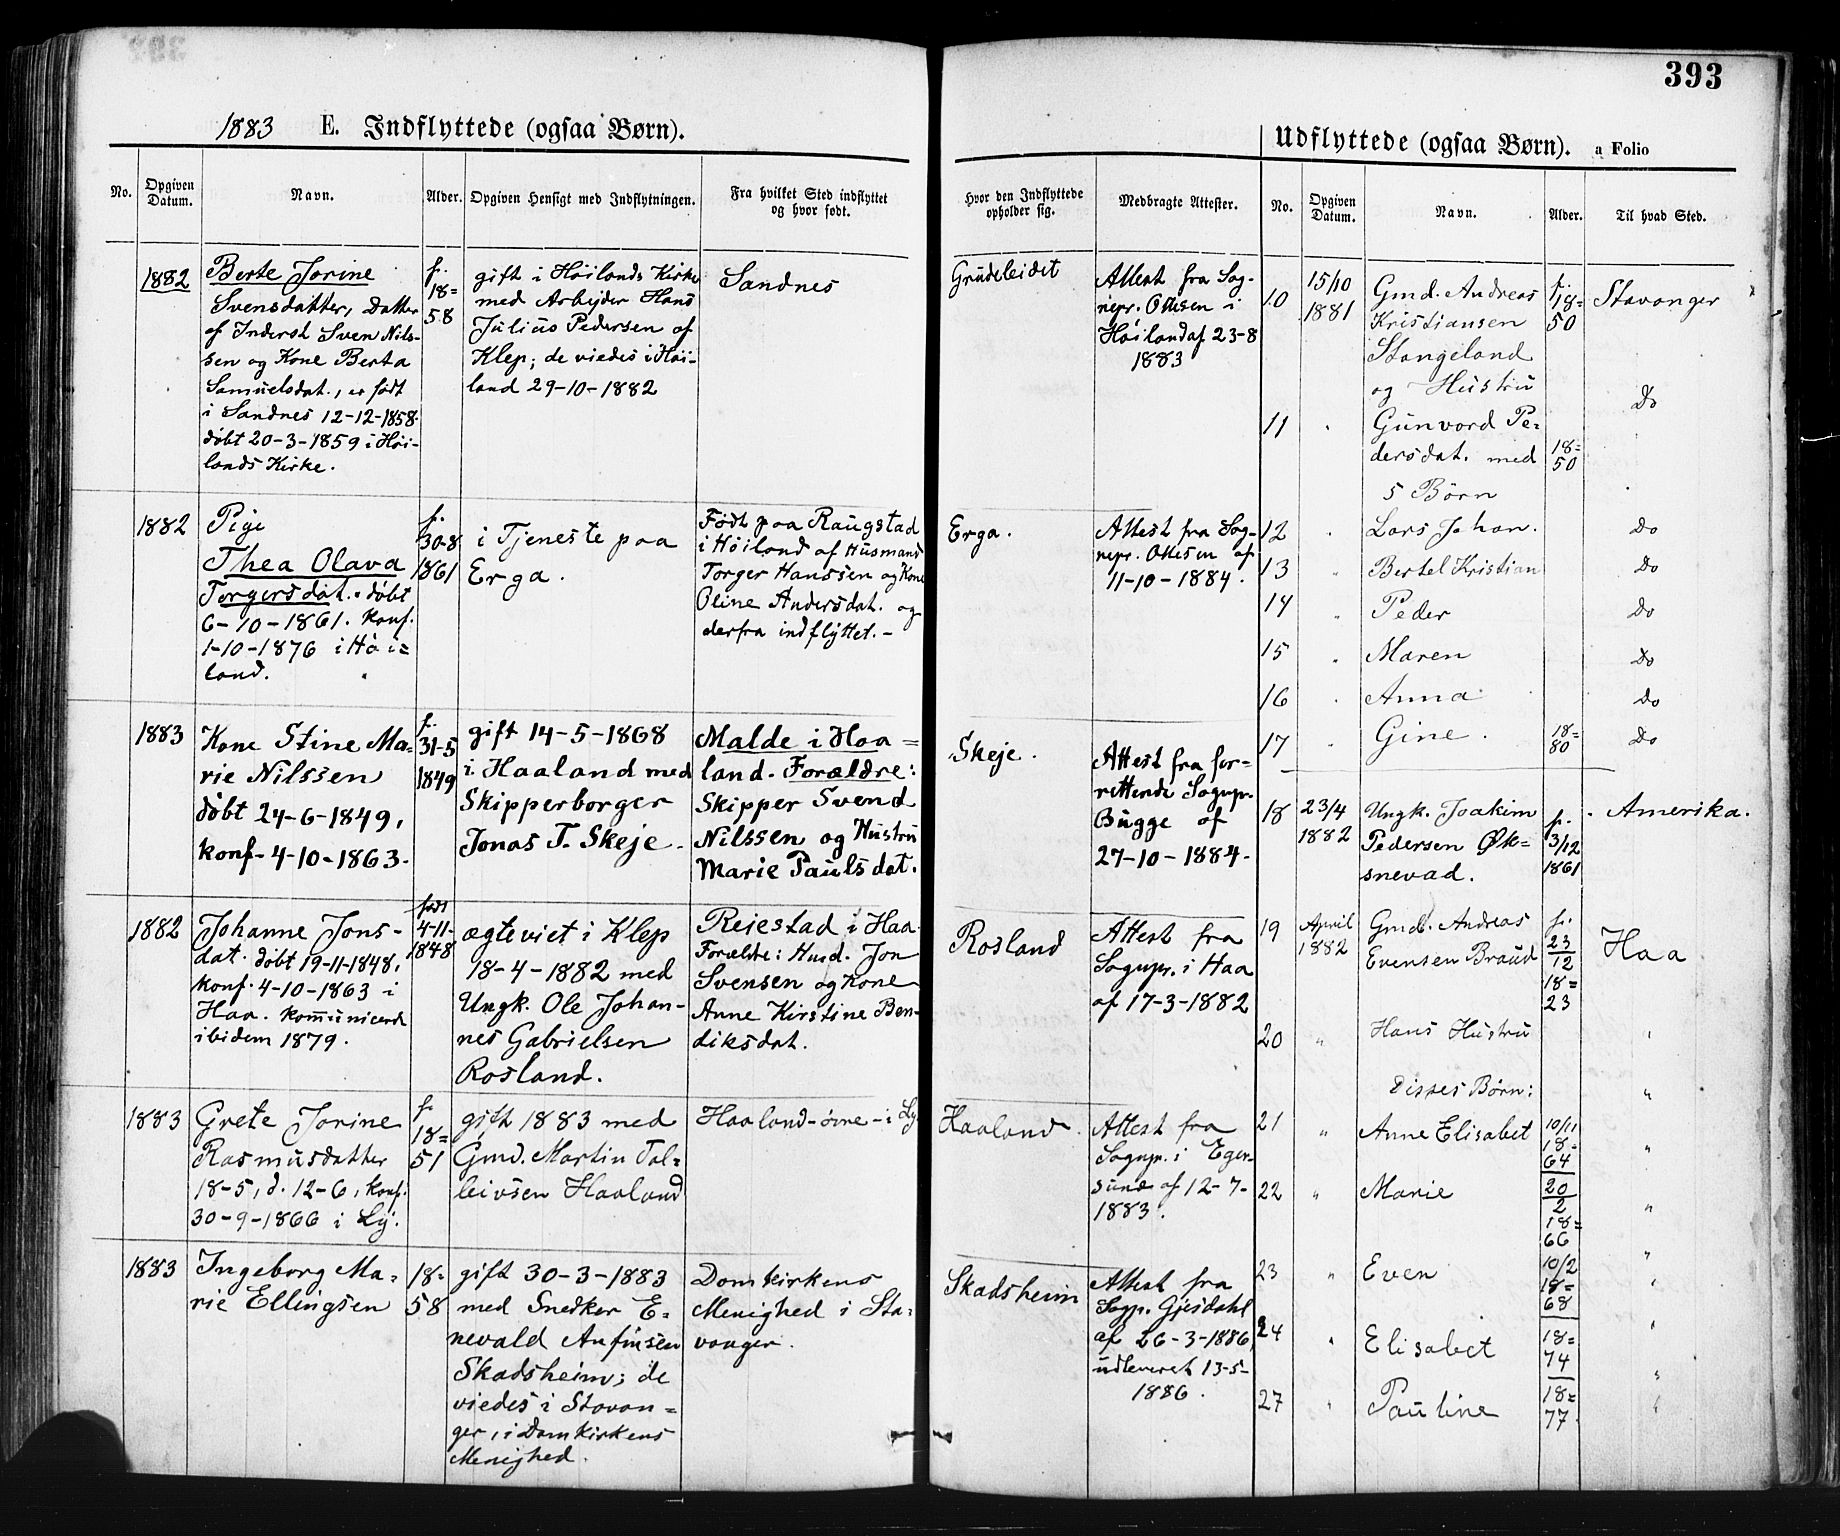 393
1883 E. Indflyttede (ogsaa Børn).
No.
Opgiven Datum.
Navn.
Alder.
Opgiven Hensigt med Indflytningen.
Fra hvilket Sted indflyttet
og hvor født.
1882
Berte Jorine
Svensdatter, Datter
af Inderst Sven Nils-
sen og Kone Berta
Samuelsdat., er født
i Sandnes 12-12-1858.
døbt 20-3-1859 i Høi-
lands Kirke.
f.
18=
58
gift i Høilands Kirke
med Arbejder Hans
Julius Pedersen af
Klep; de viedes i Høi-
land 29-10-1882
Sandnes
1882
Pige
Thea Olava
Torgersdat. døbt
6-10-1861. konf.
1-10-1876 i Høi=
land.
f.
30-8
1861
i Tjeneste paa
Erga.
Født paa Raugstad
i Høiland af Husmand
Torger Hanssen og Kone
Oline Andersdat. og
derfra indflyttet.-
1883
Kone Stine Ma=
rie Nilssen
døbt 24-6-1849,
konf. 4-10-1863.
f.
31-5
1849
gift 14-5-1868
i Haaland med
Skipperborger
Jonas T. Skeje.
Malde i Haa=
land. Forældre:
Skipper Svend
Nilssen og Hustru
Marie Paulsdat.
1882
Johanne Jons-
dat. døbt 19-11-1848,
konf. 4-10-1863 i
Haa. kommunicerd
ibidem 1879.
født
4-11-
1848
ægteviet i Klep
18-4-1882 med
Ungk. Ole Johan-
nes Gabrielsen
Rosland.
Reiestad i Haa.
Forældre: Husd. Jon
Svensen og Kone
Anne Kirstine Ben-
diksdat.
1883
Grete Jorine
Rasmusdatter
18-5, d. 12-6, konf.
30-9-1866 i Ly.
f.
18=
51
gift 1883 med
Gmd. Martin Tol=
leivsen Haaland
Haaland-øvre-i Ly
1883
Ingeborg Ma=
rie Ellingsen
18-
58
gift 30-3-1883
med Snedker E-
nevald Anfinsen
Skadsheim; de
viedes i Stavan=
ger, i Domkirkens
Menighed.
Domkirkens
Menighed i Sta=
vanger.
Udflyttede (ogsaa Børn). a Folio
Hvor den Indflyttede
opholder sig.
Medbragte Attester.
No.
Opgiven Datum.
Navn.
Alder.
Til hvad Sted.
Grudeleidet
Attest fra Sog-
nepr. Ottesen i
Høiland af 23-8
1883
Erga.
Attest fra Sog-
nepr. Ottesen af
11-10-1884.
Skeje.
Attest fra for-
rettende Sognpr.
Bugge af
27-10-1884.
Rosland
Attest fra
Sognpr. i Haa
af 17-3-1882
Haaland.
Attest fra
Sognpr. i Eger-
sund af 12-7-
1883.
Skadsheim
Attest fra
Sogpr. Gjesdahl
af 26-3-1886,
udleveret 13-5-
1886.
10 15/10 1881
Gmd. Andreas
Kristiansen
Stangeland
og Hustru
f.
18=
50
Stavanger
11 "
Gunvord Pe=
dersdat. med
5 Børn
18=
50
Do
12 " Lars Johan. Do
13 " Bertel Kristian Do
14 " Peder Do
15 " Maren Do
16 " Anna Do
17 " Gine. 18-80 Do
18 23/4 1882
Ungk. Joakim
Pedersen Øk=
snevad.
f.
3/12
1861
Amerika.
19 April 1882
Gmd. Andreas
Evensen Braud
f.
23
12
18=
23
Haa
20 " Hans Hustru "
Disses Børn: "
21 " Anne Elisabet 10/11 18=64 "
22 " Marie 20/2 18=66 "
23 " Even 10/2 18=68 "
24 " Elisabet 18=74 "
27 " Pauline 18=77 "